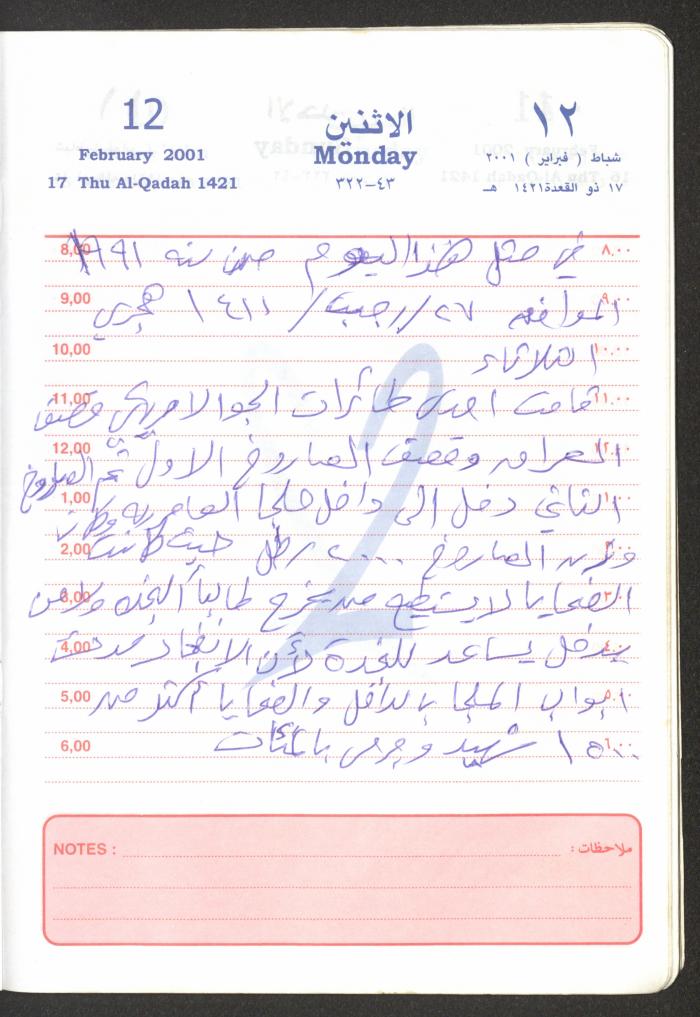 12 الاثنين ١٢
February 2001 Monday شباط ( فبراير ) ٢٠٠١
17 Thu Al-Qadah 1421 ٤٣-٣٢٢ ١٧ ذو القعدة ١٤٢١ هـ
8,00 في مثل هذا اليوم من سنه ١٩٩١ ٨,٠٠
9,00 الموافق ٢٧/رجب/١٤١١ هجري ٩,٠٠
10,00 الثلاثاء ١٠,٠٠
11,00 قامت احدى طائرات الجو الامريكي بقصف ١١,٠٠
12,00 العراق وقصف الصاروخ الاول ثم الصاروخ ١٢,٠٠
1,00 الثاني دخل الى داخل ملجا العامريه وكان ١,٠٠
2,00 وزن الصاروخ ٢٠٠٠ رطل حيث كانت ٢,٠٠
3,00 الضحايا لا يستطيع من يخرج طالباً النجده ولا من ٣,٠٠
4,00 يدخل يساعد للنجدة لأن الانفجار سدت ٤,٠٠
5,00 ابواب الملجا بالداخل والضحايا أكثر من ٥,٠٠
6,00 ١٥٠٠ شهيد وجرحى بالمئات ٦,٠٠
NOTES : ملاحظات :